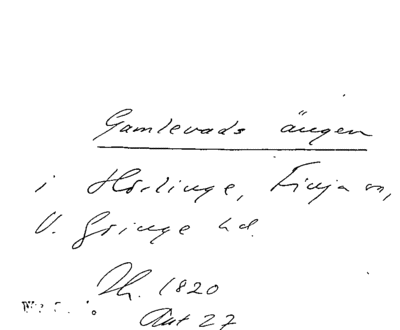 Gamlevads ängen
i Hörlinge, Finja sn,
V. Göinge hd.
Th. 1820
Akt 27